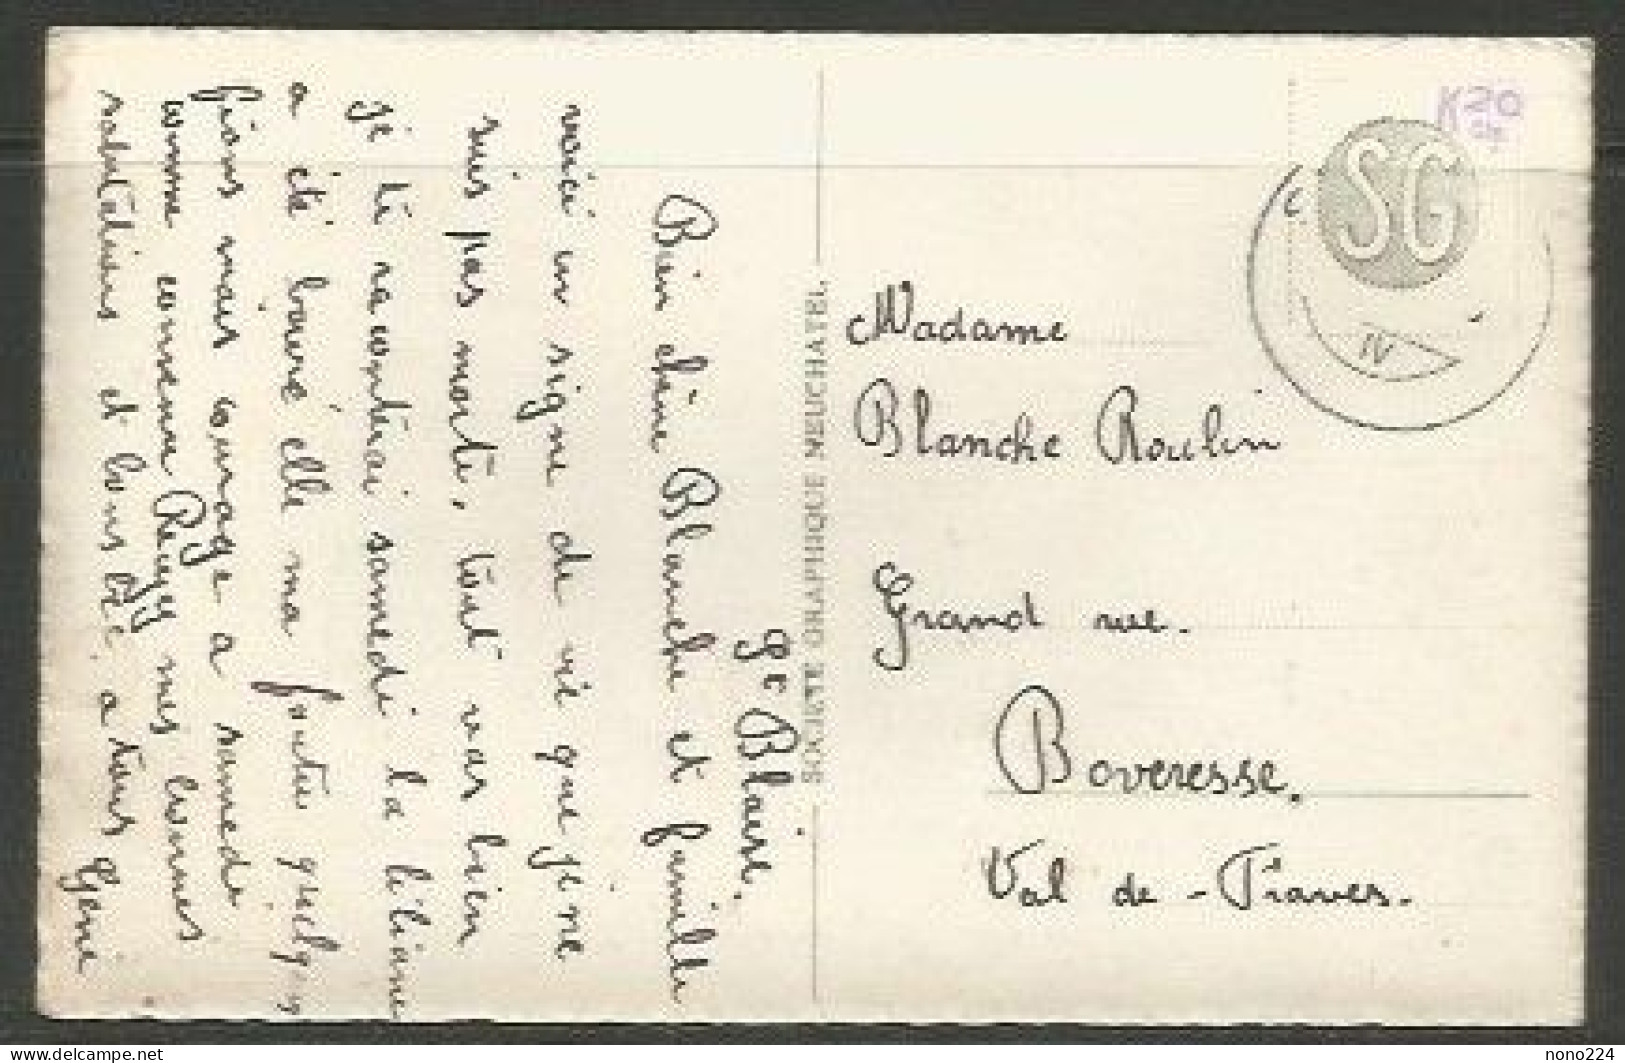 St Blaise.
Bien chère Blanche et famille
voici un signe de vie que je ne
suis pas morte, tout vas bien
je te racontérai samedi la liliane
a été boire elle ma foutu quelque
fions mais courage a samedi
comme convenu Reugy mes bonnes
salutations et bons bec a tous Géni
SOCIETE GRAPHIQUE NEUCHATEL
Madame
Blanche Roulin
Grand rue.
Boveresse.
Val de - Travers.
SG
IV
K20
delcampe.net
nono224